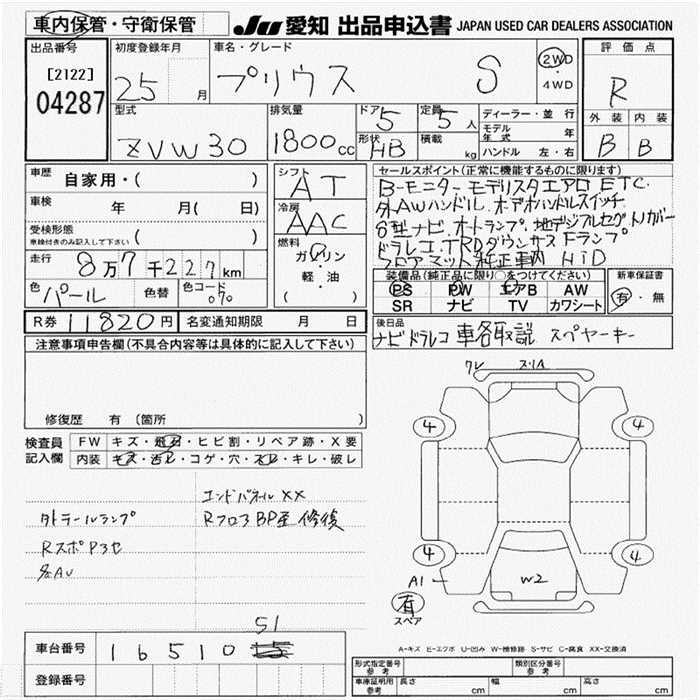 車内保管・守衛保管
JU 愛知 出品申込書 JAPAN USED CAR DEALERS ASSOCIATION
出品番号
[2122]
04287
初度登録年月
25 月
車名・グレード
プリウス S
2WD
・
4WD
評価点
R
外装 内装
B B
型式
ZVW30
排気量
1800cc
ドア 5
形状 HB
定員 5人
積載 kg
ディーラー・並行
モデル年式 年
ハンドル 左・右
車歴
自家用・( )
車検 年 月( 日)
受検形態
車検付きのみ記入して下さい ( )
走行 8万7千227km
色 パール 色替 色コード 070
R券 11820円 名変通知期限 月 日
シフト AT
冷房 AAC
燃料
ガソリン
・
軽・油
( )
セールスポイント(正常に機能するものに限ります)
Bモニター モデリスタエアロ ETC
AWハンドル
ドラレコ TRDダウンサス Fランプ
フロアマット 純正車内 HiD
装備品(純正品に限り○をつけてください)
PS PW エアB AW
SR ナビ TV カワシート
新車保証書
有・無
後日品
ナビ ドラレコ 車各取説 スペヤーキー
注意事項申告欄(不具合内容等は具体的に記入して下さい)
修復歴 有 (箇所 )
検査員
記入欄
FW キズ・飛石・ヒビ割・リペア跡・X要
内装 キズ・汚レ・コゲ・穴・スレ・キレ・破レ
エンドパネル XX
外テールランプ RフロアBP歪 修復
RスポP3セ
AU
ワレ スリA
4 4
4 4
A1
W2
有
スペア
A-キズ E-エクボ U-凹み W-補修跡 S-サビ C-腐食 XX-交換済
51
車台番号 16510
登録番号
形式指定番号 参考
類別区分番号 参考
車庫証明用 参考 長さ cm 幅 cm 高さ cm